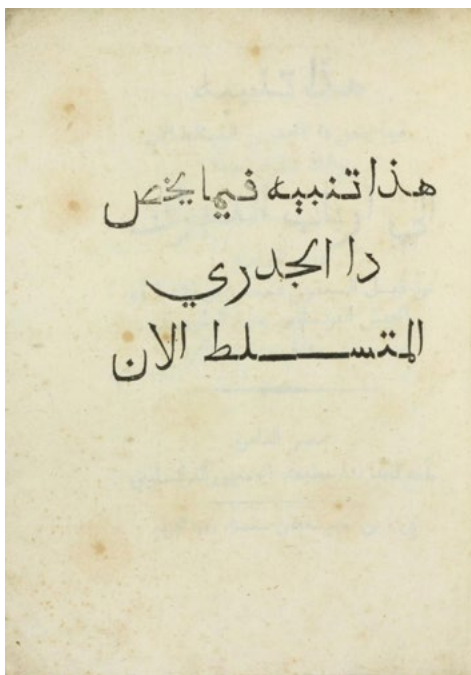 هذا تنبيه فيما يخص
دا الجدري
المتسلط الان